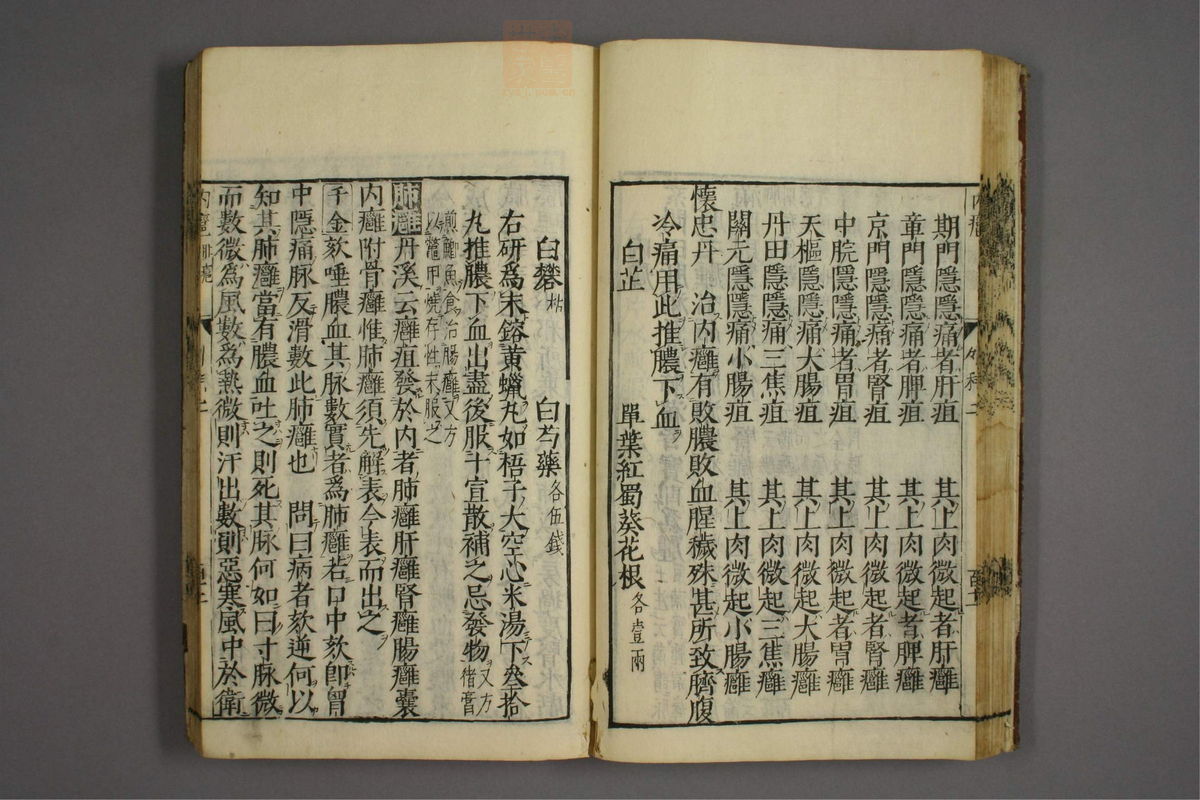 期門隱隱痛者肝疽　其上肉微起者肝癰
章門隱隱痛者脾疽　其上肉微起者脾癰
京門隱隱痛者腎疽　其上肉微起者腎癰
中脘隱隱痛者胃疽　其上肉微起者胃癰
天樞隱隱痛大腸疽　其上肉微起大腸癰
丹田隱隱痛三焦疽　其上肉微起三焦癰
關元隱隱痛小腸疽　其上肉微起小腸癰
懷忠丹　治內癰有敗膿敗血腥穢殊甚所致臍腹
冷痛用此推膿下血
白芷　單葉紅蜀葵花根各壹兩
白礬枯　白芍藥各伍錢
右研爲末鎔黃蠟丸如梧子大空心米湯下叁拾
丸推膿下血出盡後服十宣散補之忌發物又方猪膏
煎鯽魚食治腸癰又方
以鱉甲燒存性末服之
肺癰丹溪云癰疽發於內者肺癰肝癰腎癰腸癰囊
內癰附骨癰惟肺癰須先解表令表而出之
千金欬唾膿血其脉數實者爲肺癰若口中欬卽胷
中隱痛脉反滑數此肺癰也　問曰病者欬逆何以
知其肺癰當有膿血吐之則死其脉何如曰寸脉微
而數微爲風數爲熱微則汗出數則惡寒風中於衛